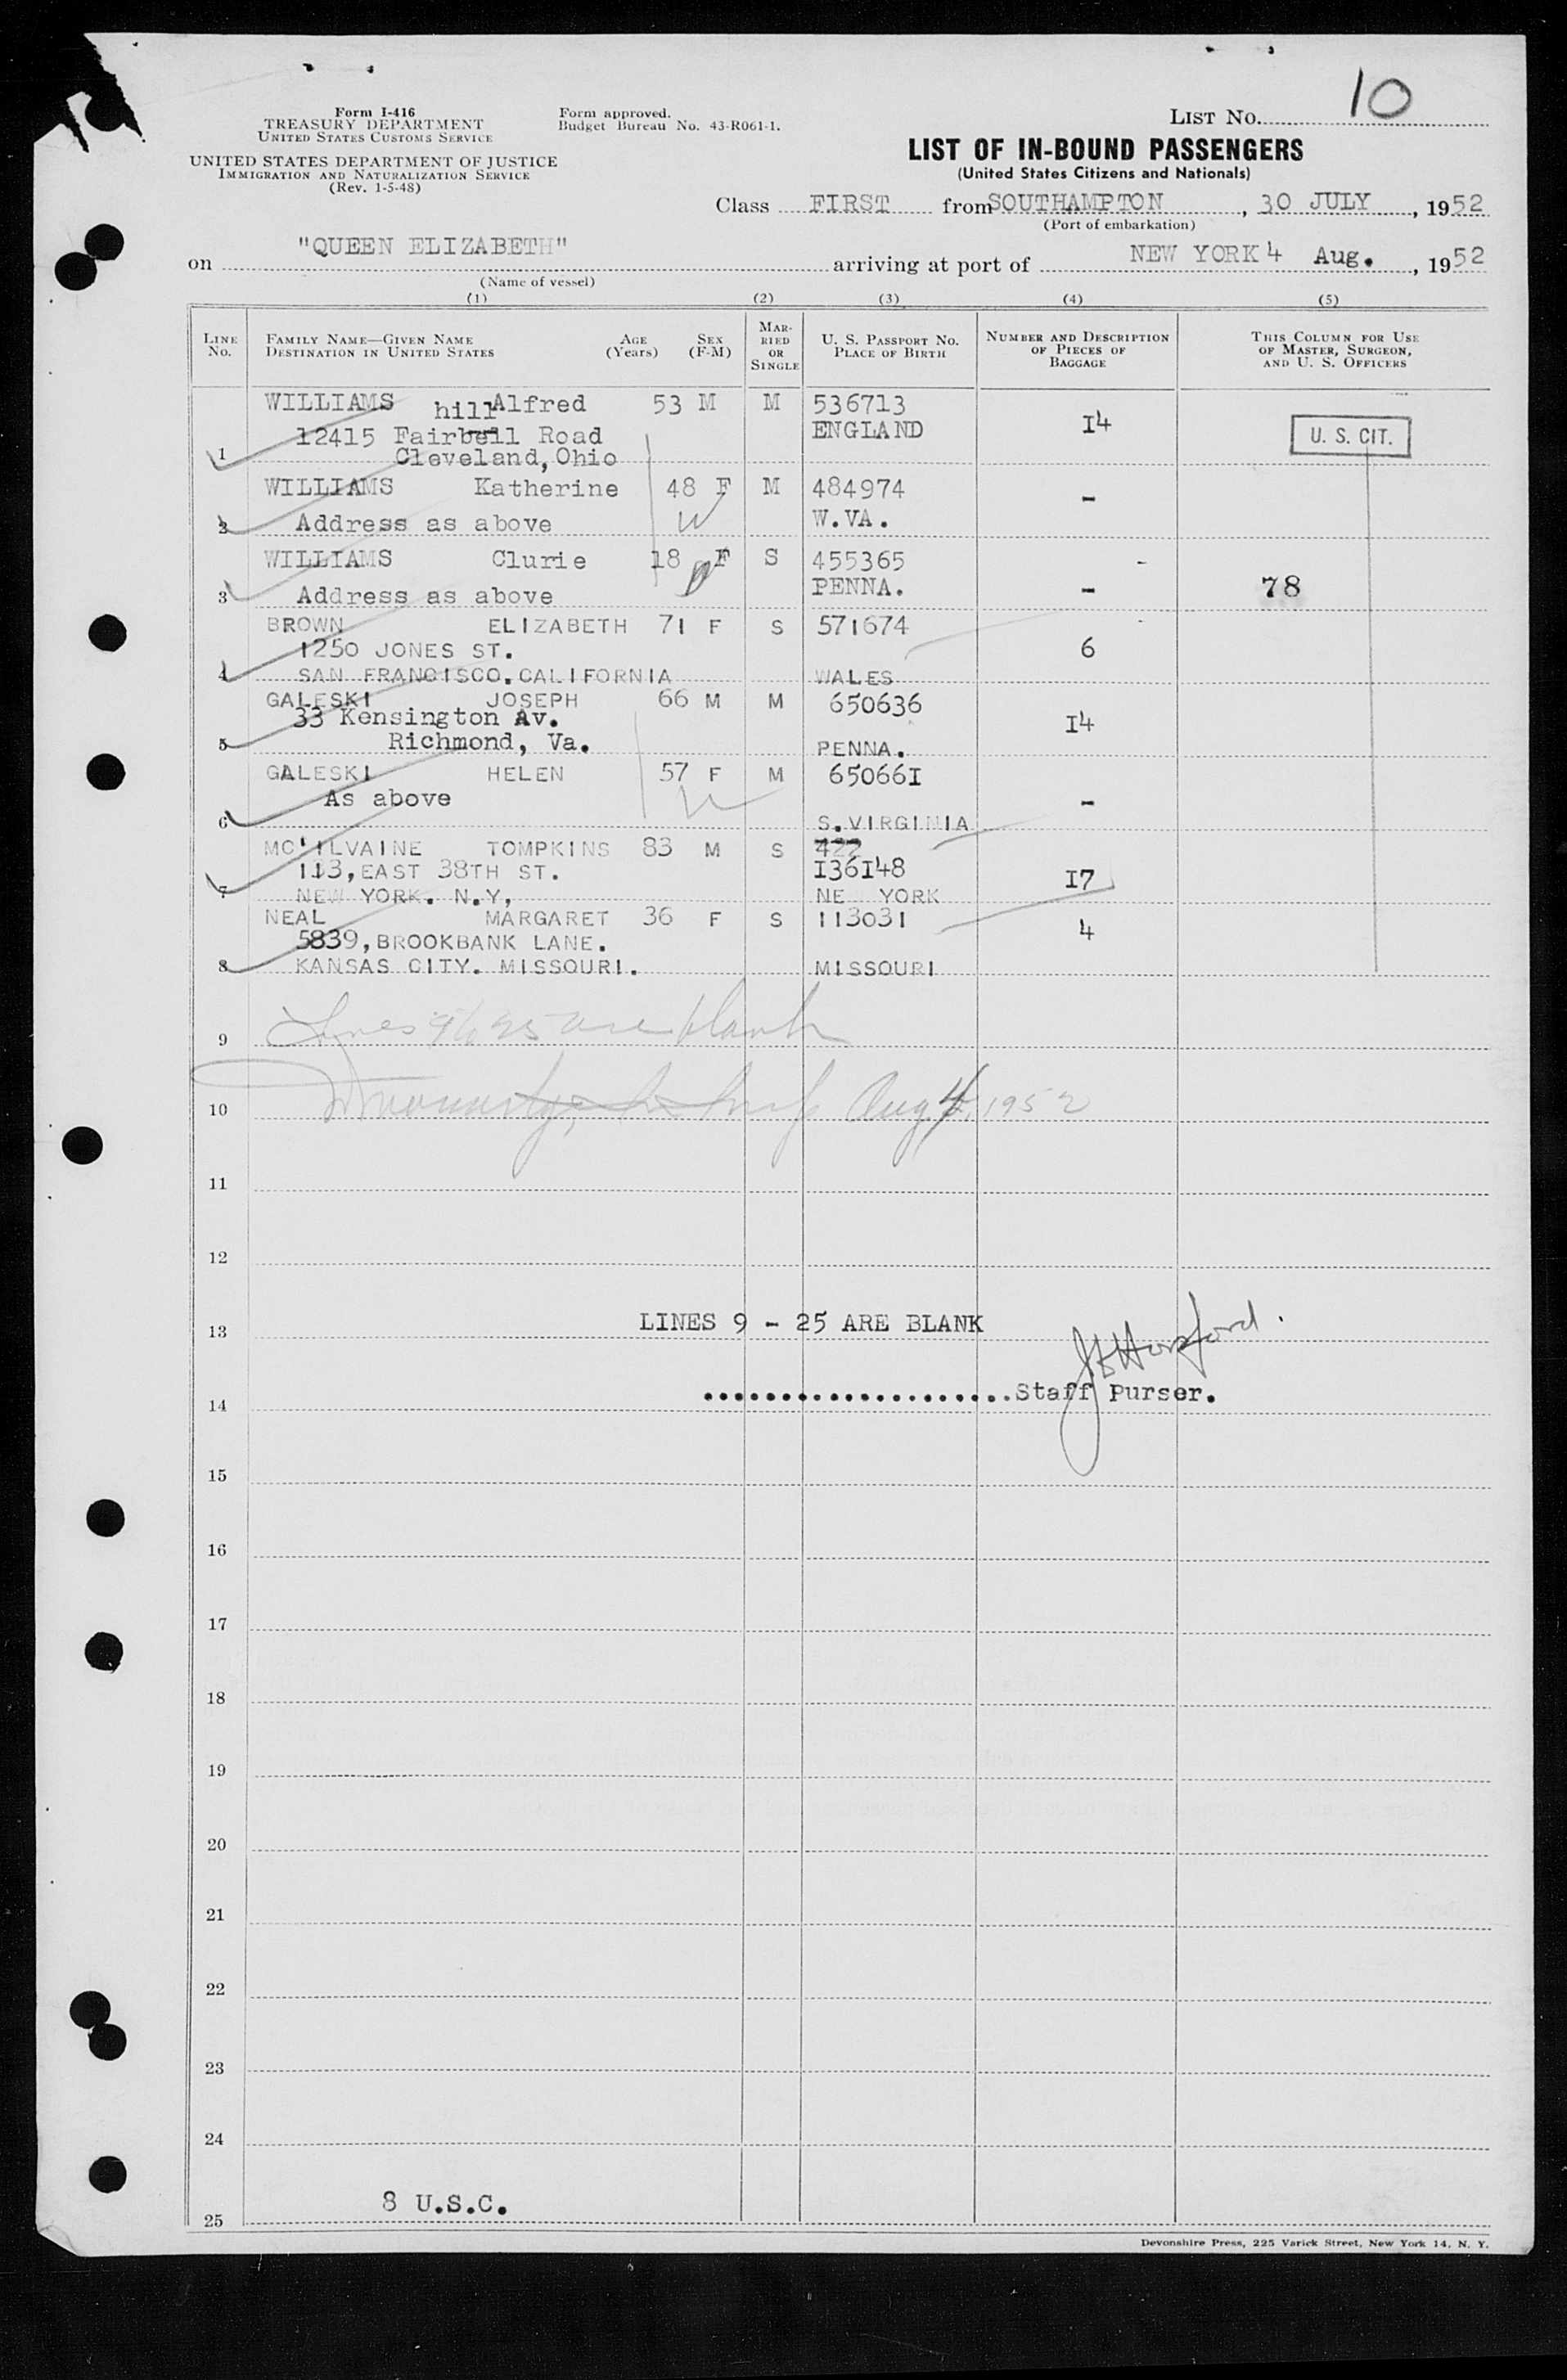 Form I-416
TREASURY DEPARTMENT
UNITED STATES CUSTOMS SERVICE
UNITED STATES DEPARTMENT OF JUSTICE
IMMIGRATION AND NATURALIZATION SERVICE
(Rev. 1-5-48)
Form approved.
Budget Bureau No. 43-R061-1.
LIST No. 10
LIST OF IN-BOUND PASSENGERS
(United States Citizens and Nationals)
Class FIRST from SOUTHAMPTON, 30 JULY, 1952
(Port of embarkation)
on "QUEEN ELIZABETH" arriving at port of NEW YORK 4 Aug., 1952
(Name of vessel)
(1) (2) (3) (4) (5)
LINE No.
FAMILY NAME—GIVEN NAME
DESTINATION IN UNITED STATES
AGE (Years)
SEX (F-M)
MARRIED OR SINGLE
U. S. PASSPORT No.
PLACE OF BIRTH
NUMBER AND DESCRIPTION OF PIECES OF BAGGAGE
THIS COLUMN FOR USE OF MASTER, SURGEON, AND U. S. OFFICERS
WILLIAMS Alfred 53 M M 536713
hill
12415 Fairbell Road ENGLAND 14 U. S. CIT.
1 Cleveland, Ohio
WILLIAMS Katherine 48 F M 484974 -
2 Address as above W.VA.
WILLIAMS Clurie 18 F S 455365
3 Address as above PENNA. - 78
BROWN ELIZABETH 71 F S 571674
1250 JONES ST. 6
4 SAN FRANCISCO. CALIFORNIA WALES
GALESKI JOSEPH 66 M M 650636
33 Kensington Av. 14
5 Richmond, Va. PENNA.
GALESKI HELEN 57 F M 650661
As above -
6 S.VIRGINIA
MC'ILVAINE TOMPKINS 83 M S 422
113, EAST 38TH ST. 136148 17
7 NEW YORK. N.Y, NE YORK
NEAL MARGARET 36 F S 113031 4
5839, BROOKBANK LANE.
8 KANSAS CITY. MISSOURI. MISSOURI
9 Lines 9 to 25 are blank
10 Aug 4, 1952
11
12
13 LINES 9 - 25 ARE BLANK
14 ....................Staff Purser.
15
16
17
18
19
20
21
22
23
24
8 U.S.C.
25
Devonshire Press, 225 Varick Street, New York 14, N. Y.